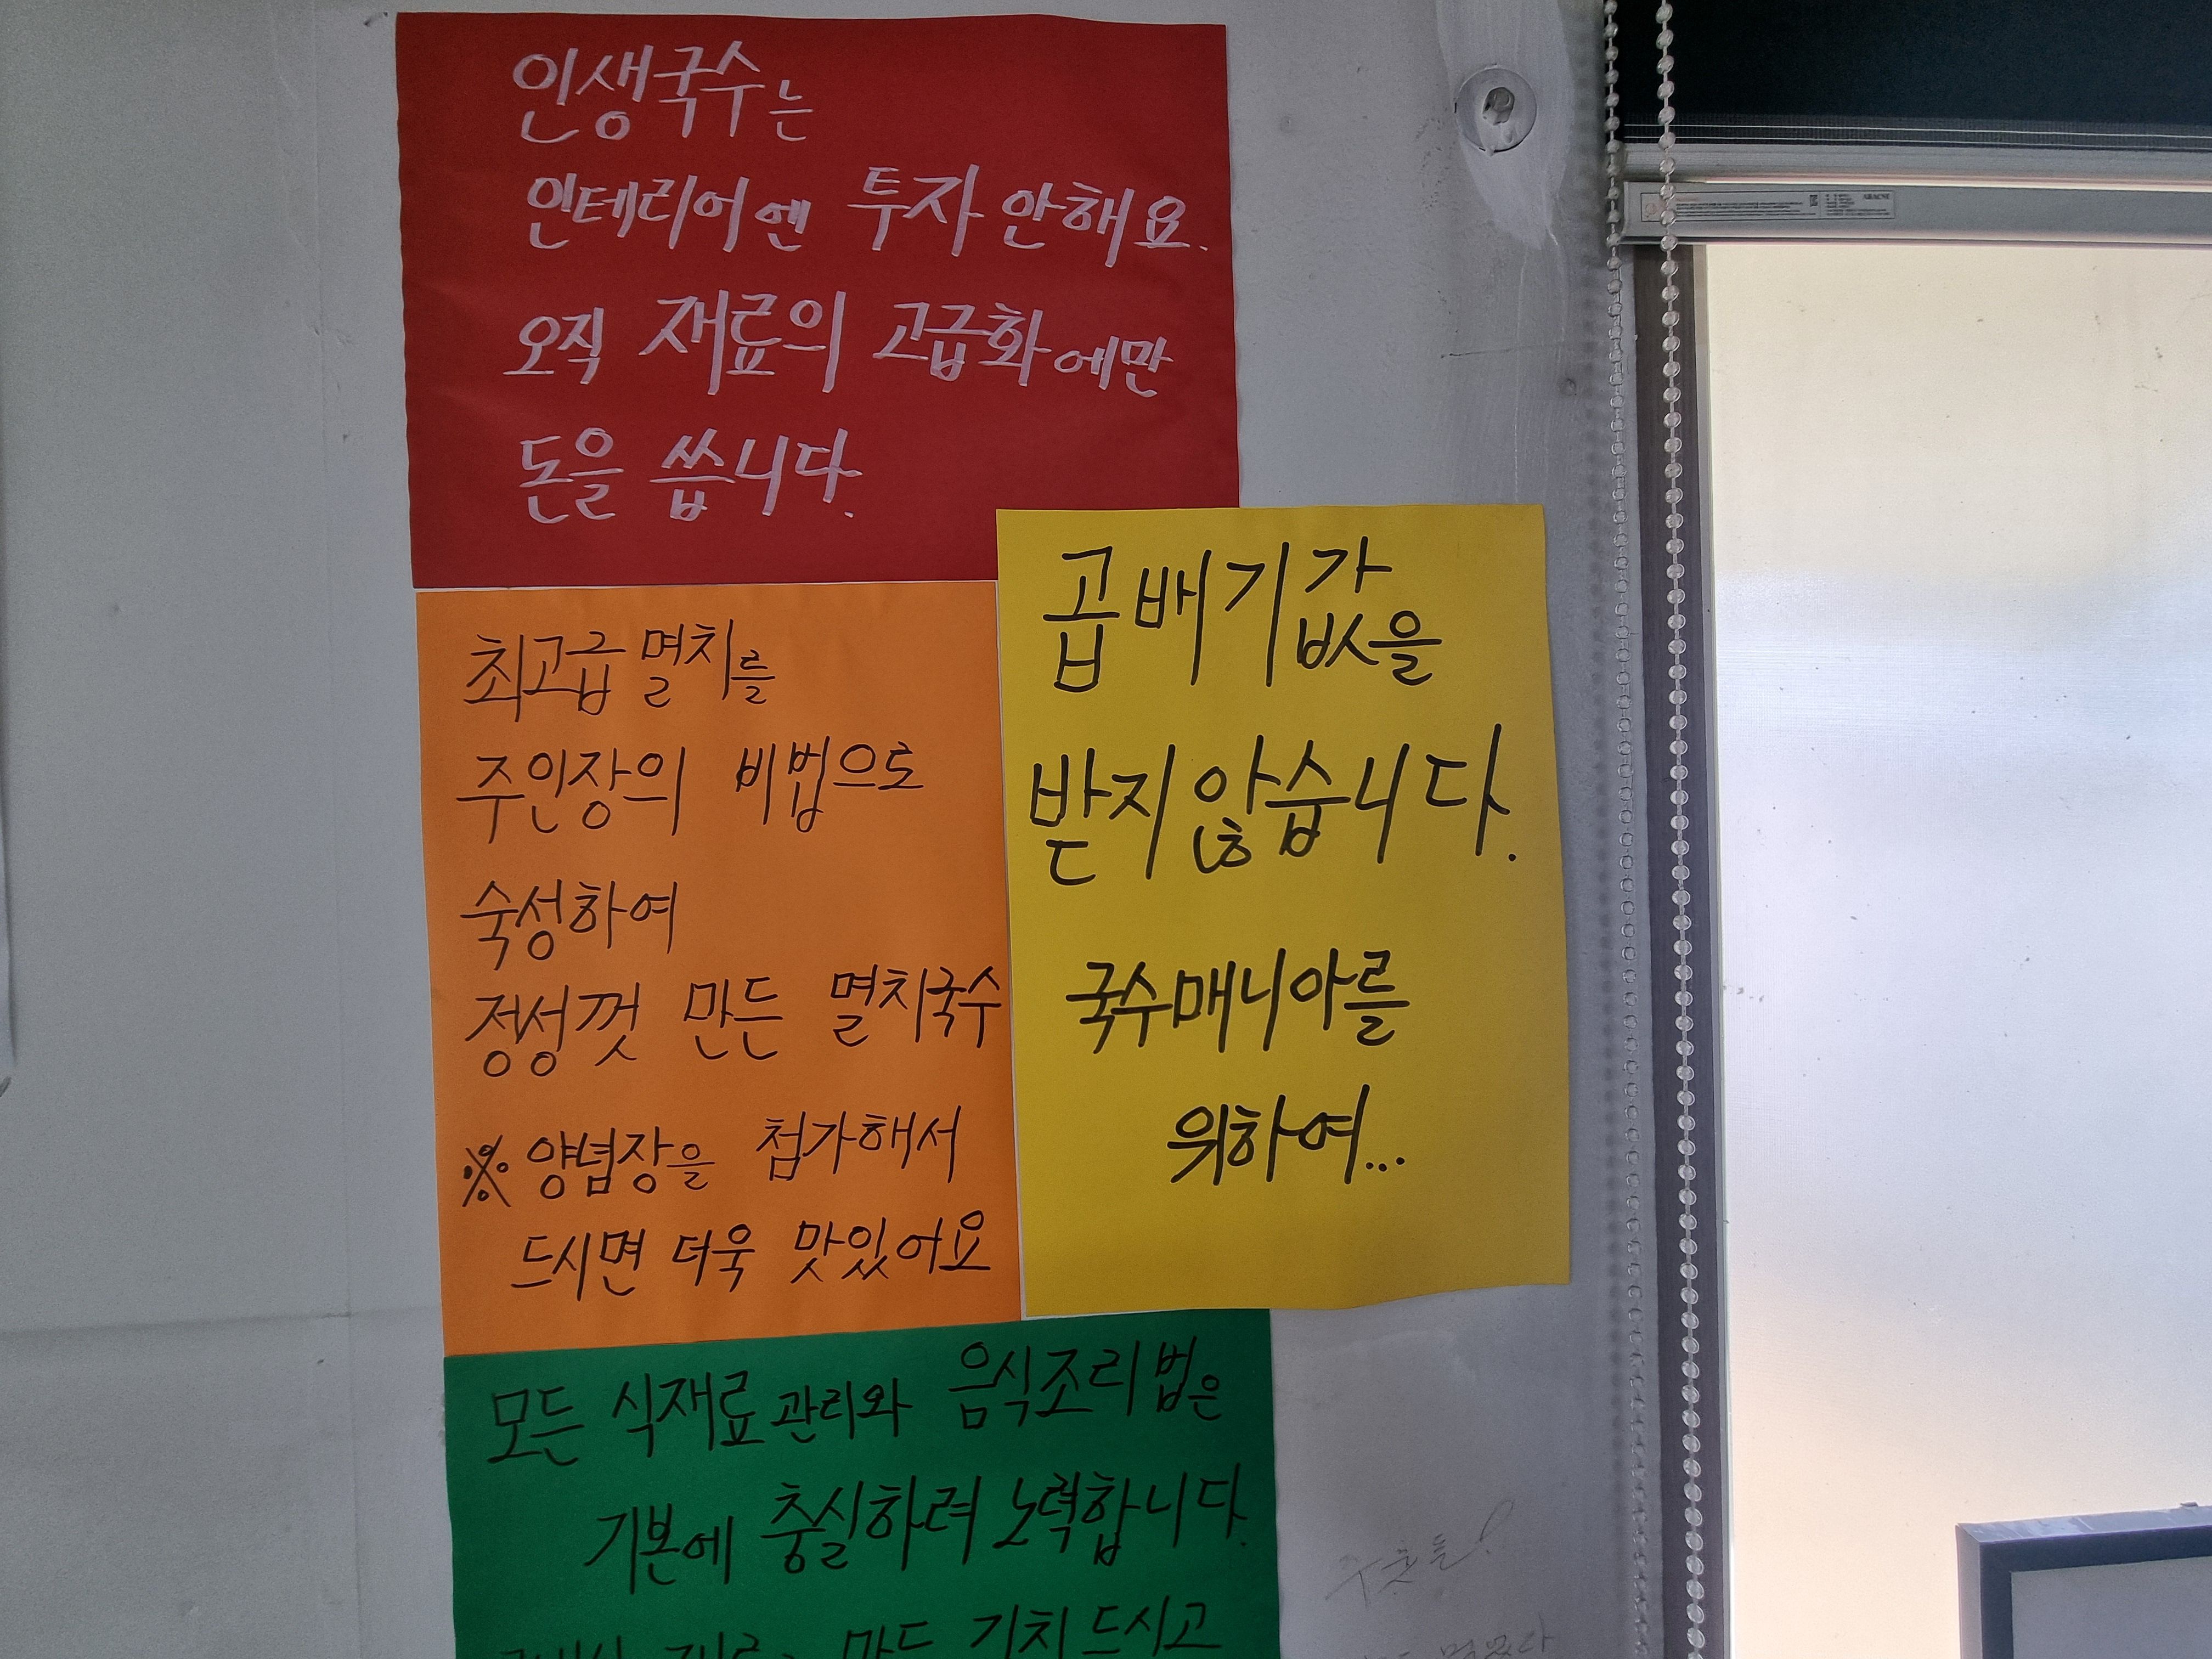 인생국수는
인테리어엔 투자 안해요.
오직 재료의 고급화에만
돈을 씁니다.
곱배기값을
받지 않습니다.
국수매니아를
위하여...
최고급 멸치를
주인장의 비법으로
숙성하여
정성껏 만든 멸치국수
※ 양념장을 첨가해서
드시면 더욱 맛있어요
모든 식재료 관리와 음식조리법은
기본에 충실하려 노력합니다.
만든 김치 드시고